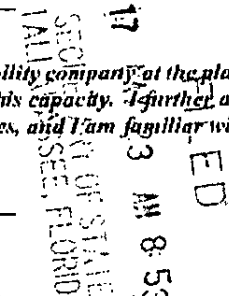 ility company at the pla
his capacity. I further a
es, and I am familiar wi
17
3 AM 8:53
ED
SEC OF STATE
TALL SSEE, FLORID